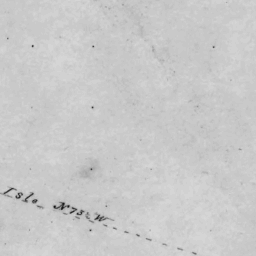 Isle N 75 W